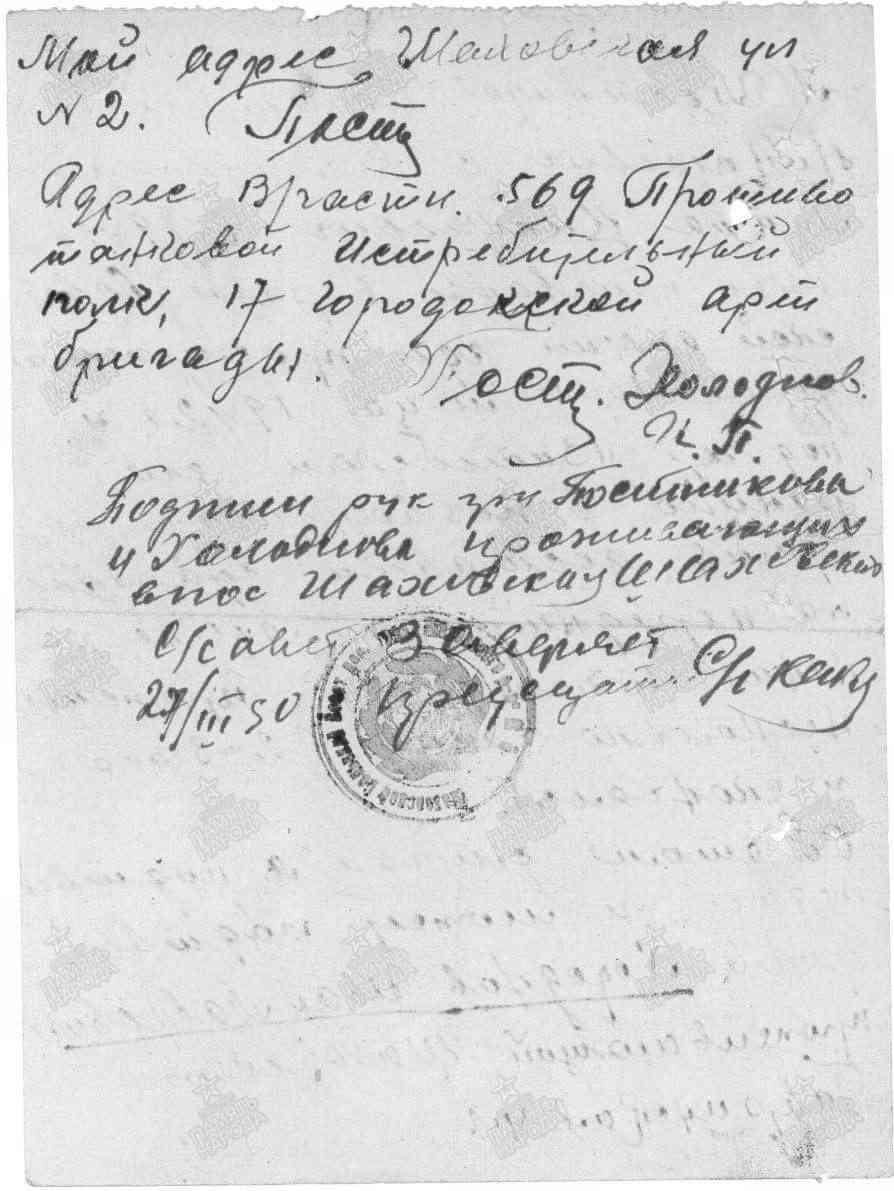 Мой адрес Шаховская ул
N 2. Пост
Адрес В/части. 569 Противо
танковой Истребительный
полк, 17 Городокской арт
бригады.
Пост. Холоднов.
Подписи рук гр-н Постникова
и Холоднова проживающих
в пос Шаховская Шаховский
С/совет Заверяет
27/III 50 С/с